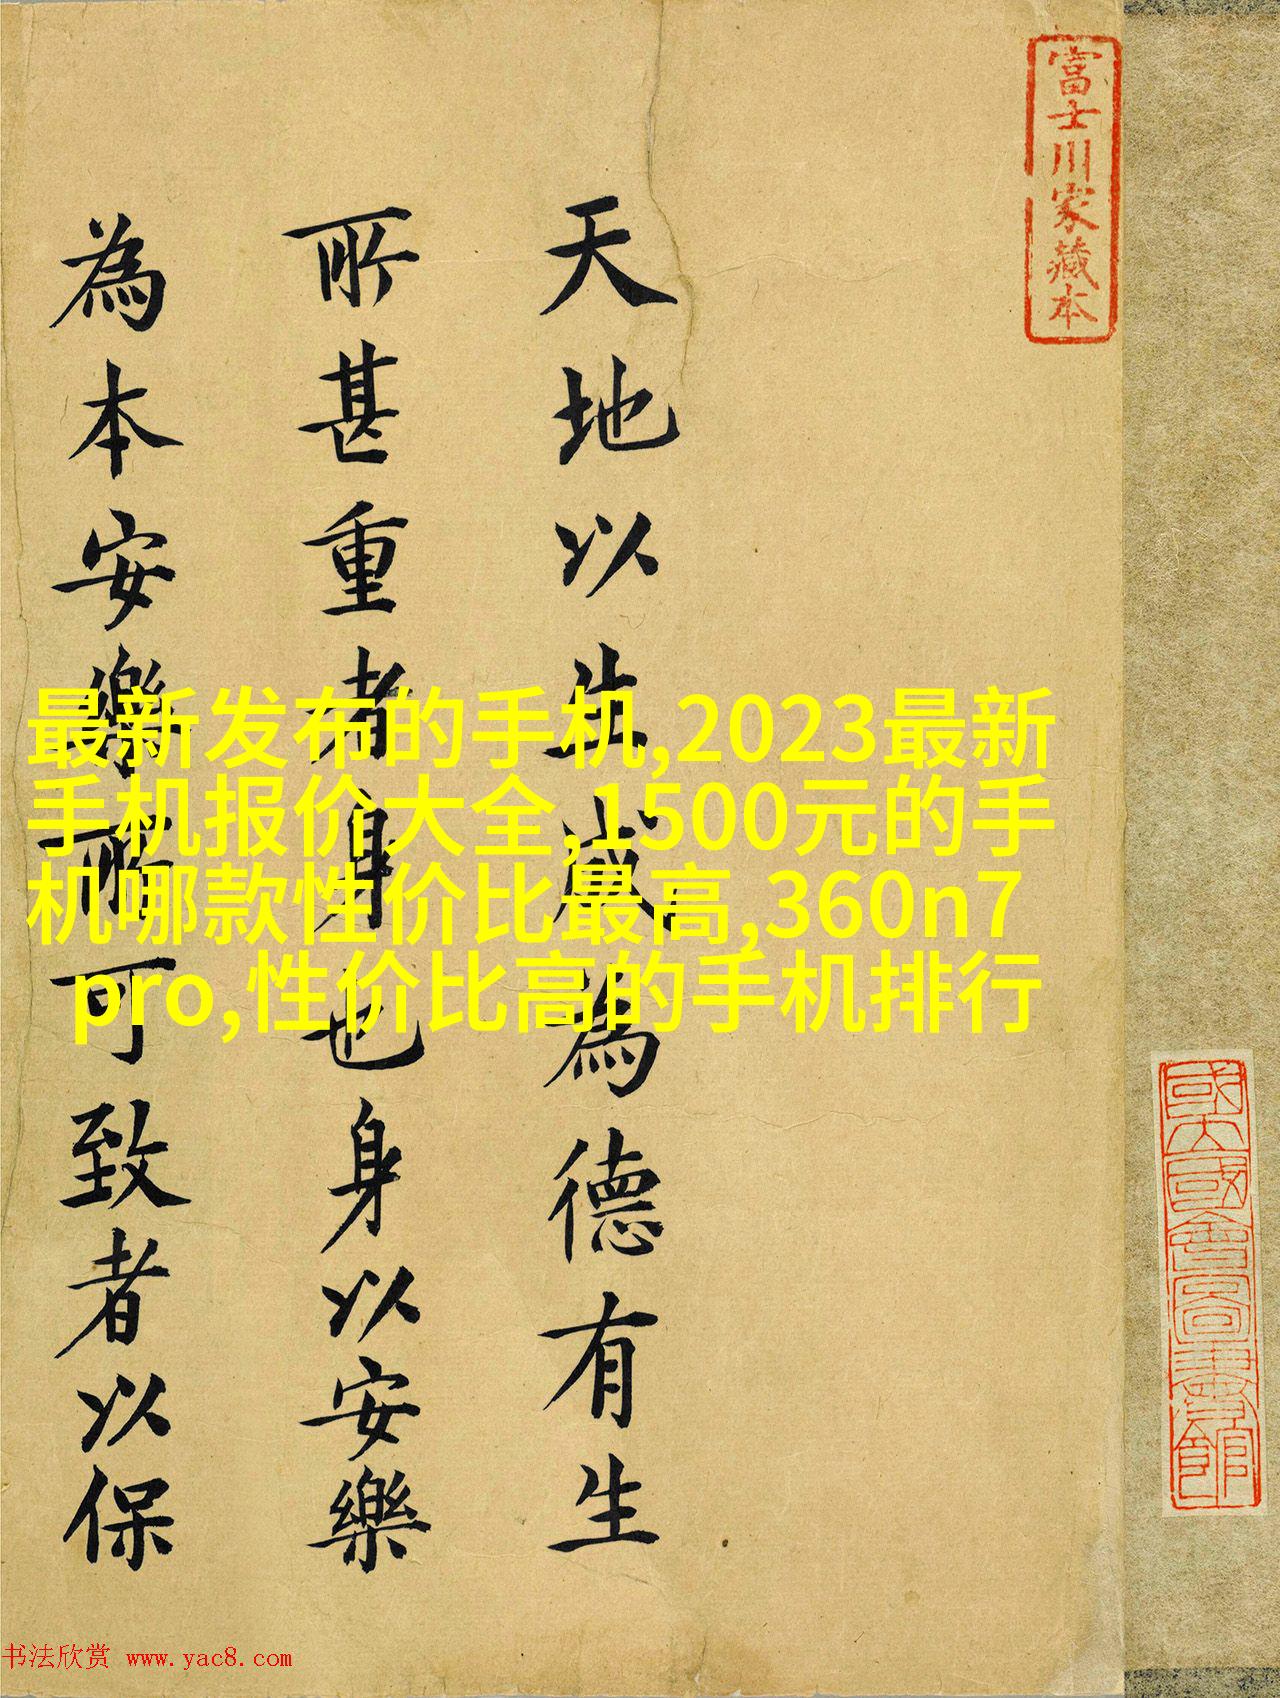 富士川家藏本
國立國會圖書館
天地以生成為德有生
所甚重者身也身以安樂
為本安樂所可致者以保
最新发布的手机,2023最新
手机报价大全,1500元的手
机哪款性价比最高,360n7
pro,性价比高的手机排行
书法欣赏 www.yac8.com